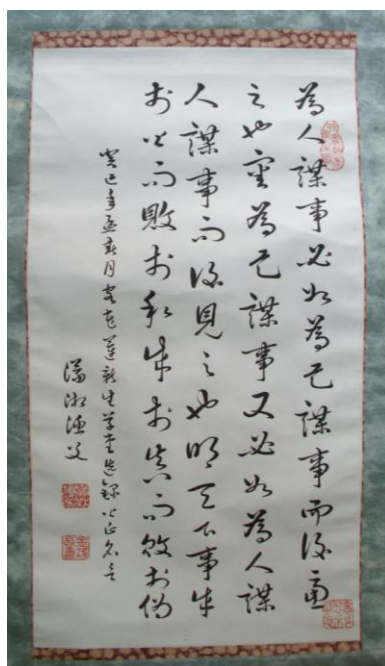 為人謀事必如為己謀事而後慮
之也審為己謀事又必如為人謀
人謀事而後見之也明天下事成
於公而敗於私成於真而敗於偽
癸巳年孟春月客花蓮新生草堂選錄公正名言
瀟湘漁父